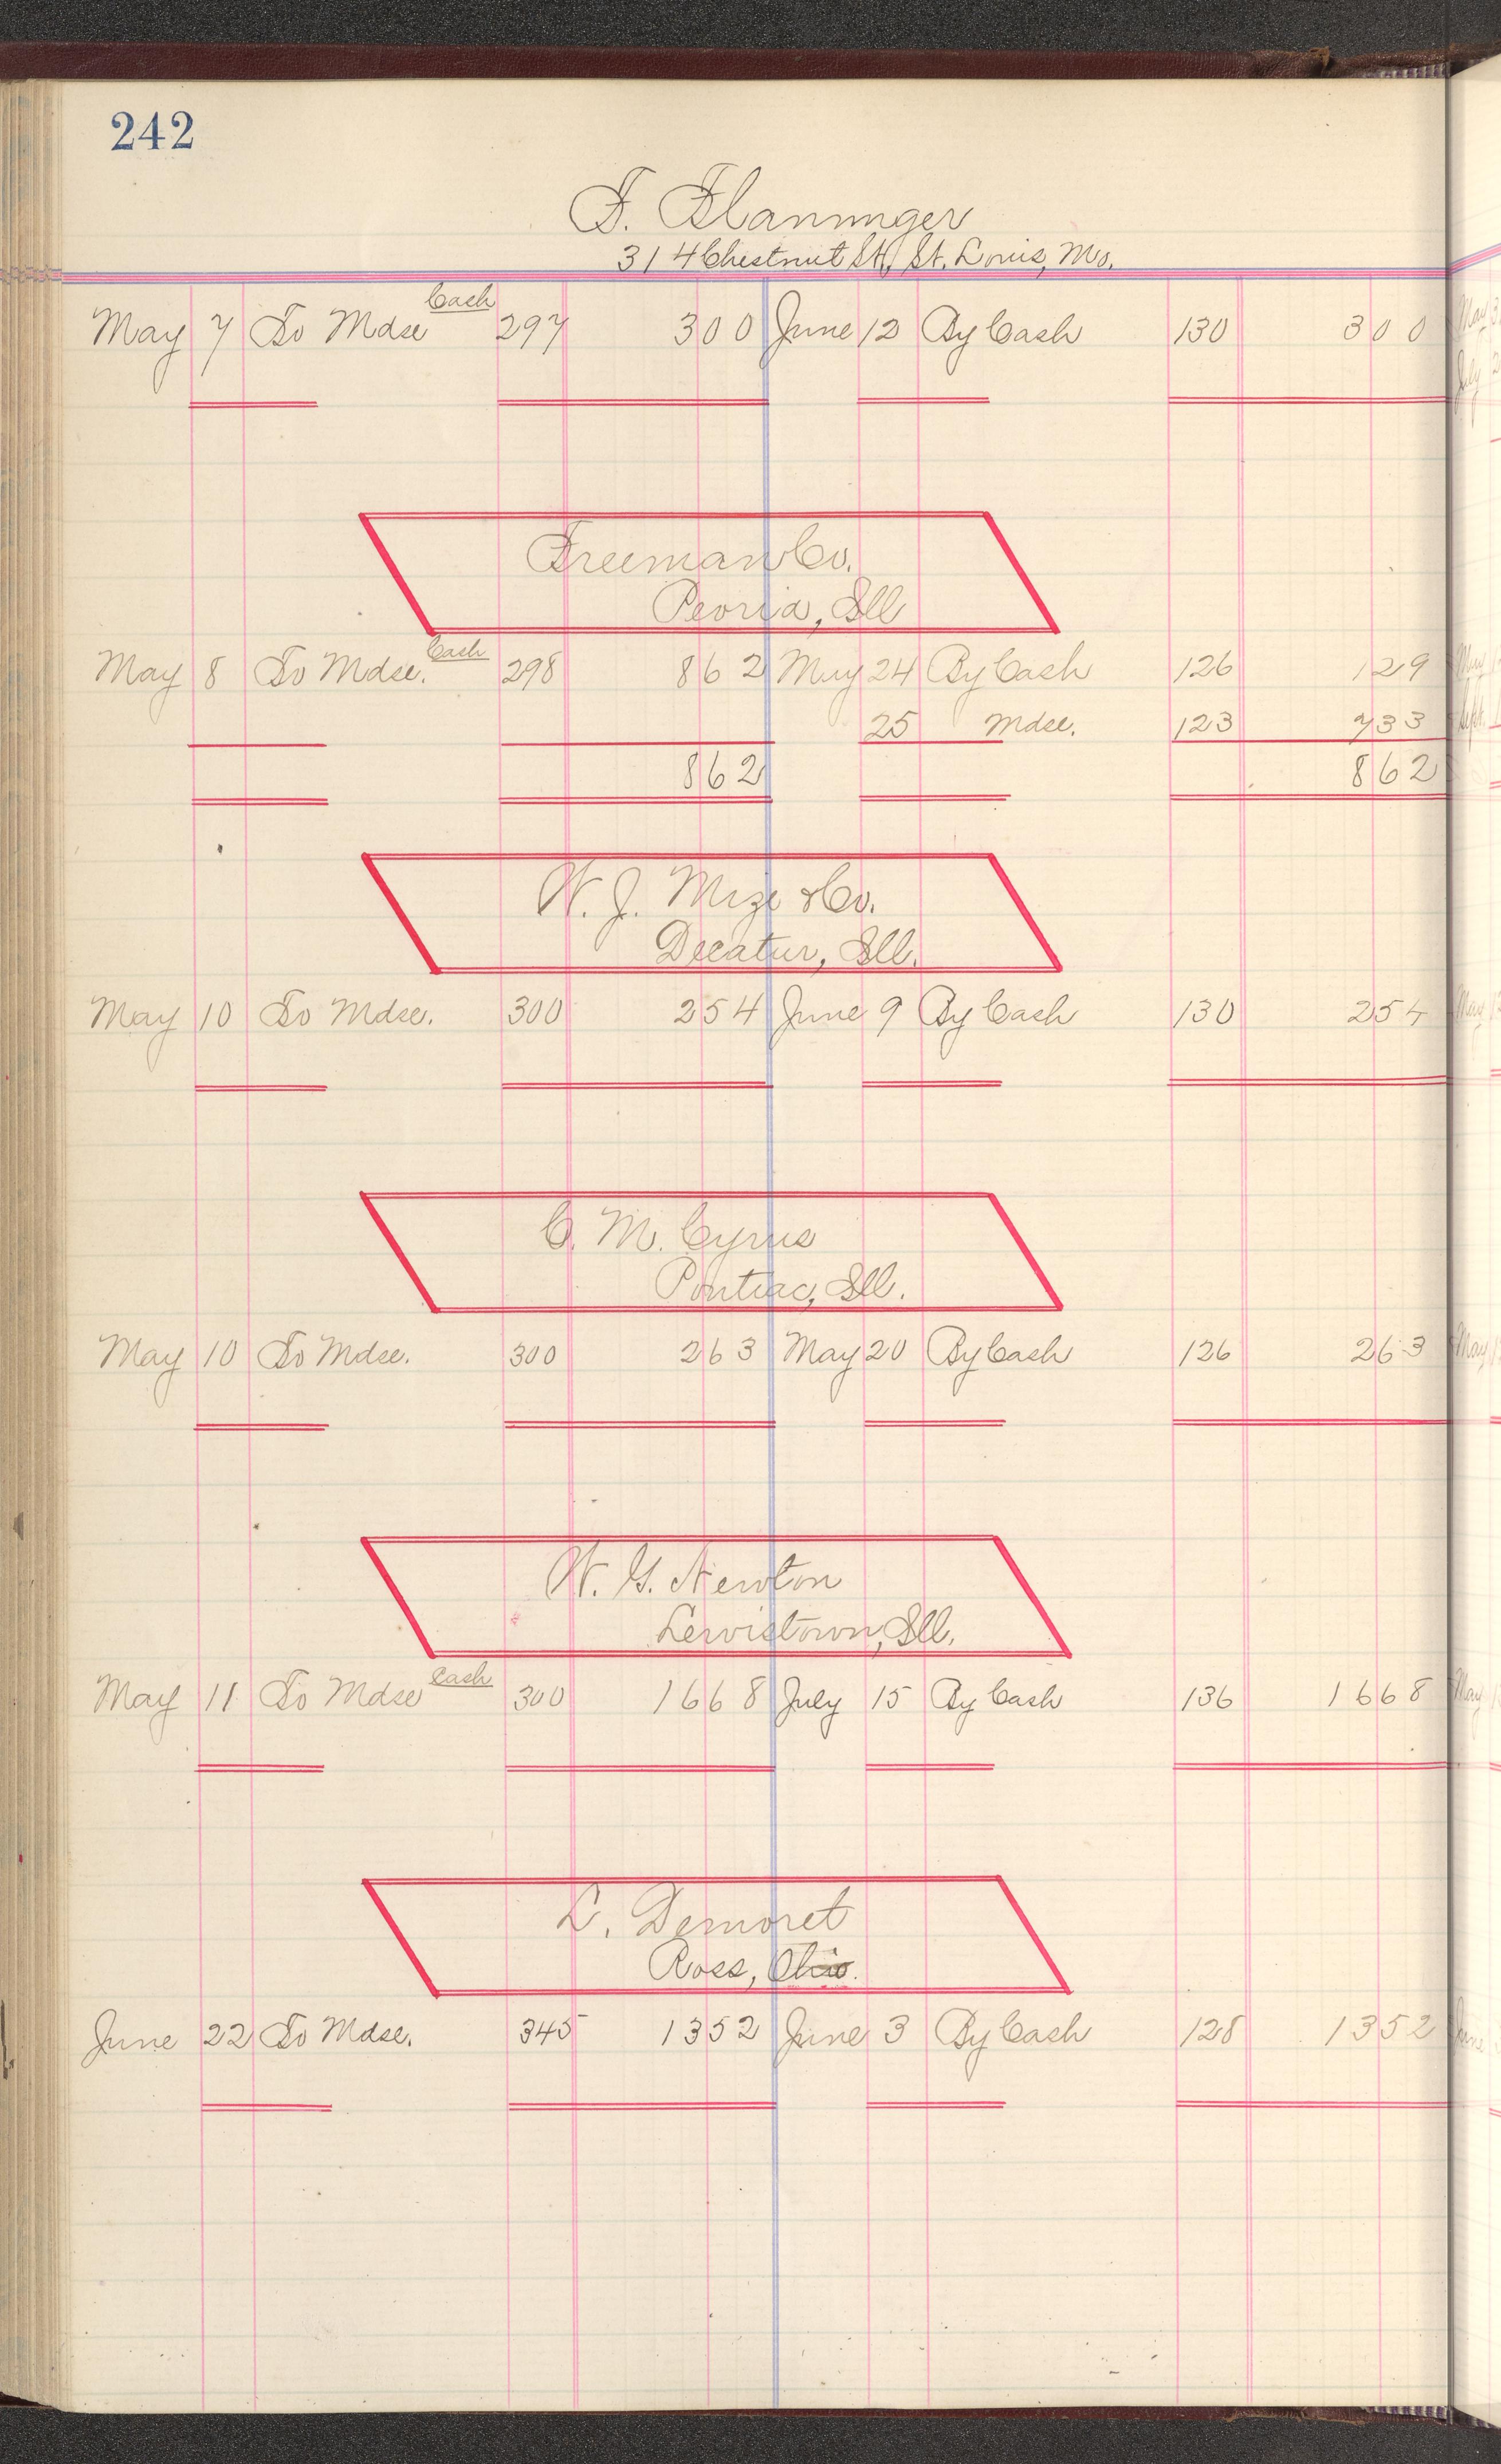 242
F. Flanninger
314 Chestnut St., St. Louis, Mo.
Cash
May 7 To Mdse 297 300 June 12 By Cash 130 300
Freeman Co.
Peoria, Ill
Cash
May 8 To Mdse. 298 862 May 24 By Cash 126 129
25 Mdse. 123 733
862 862
W. J. Mize & Co.
Decatur, Ill.
May 10 To Mdse. 300 254 June 9 By Cash 130 254
C. M. Cyrus
Pontiac, Ill.
May 10 To Mdse. 300 263 May 20 By Cash 126 263
W. G. Newton
Lewistown, Ill.
Cash
May 11 To Mdse 300 1668 July 15 By Cash 136 1668
L. Demoret
Ross, Ohio.
June 22 To Mdse. 345 1352 June 3 By Cash 128 1352